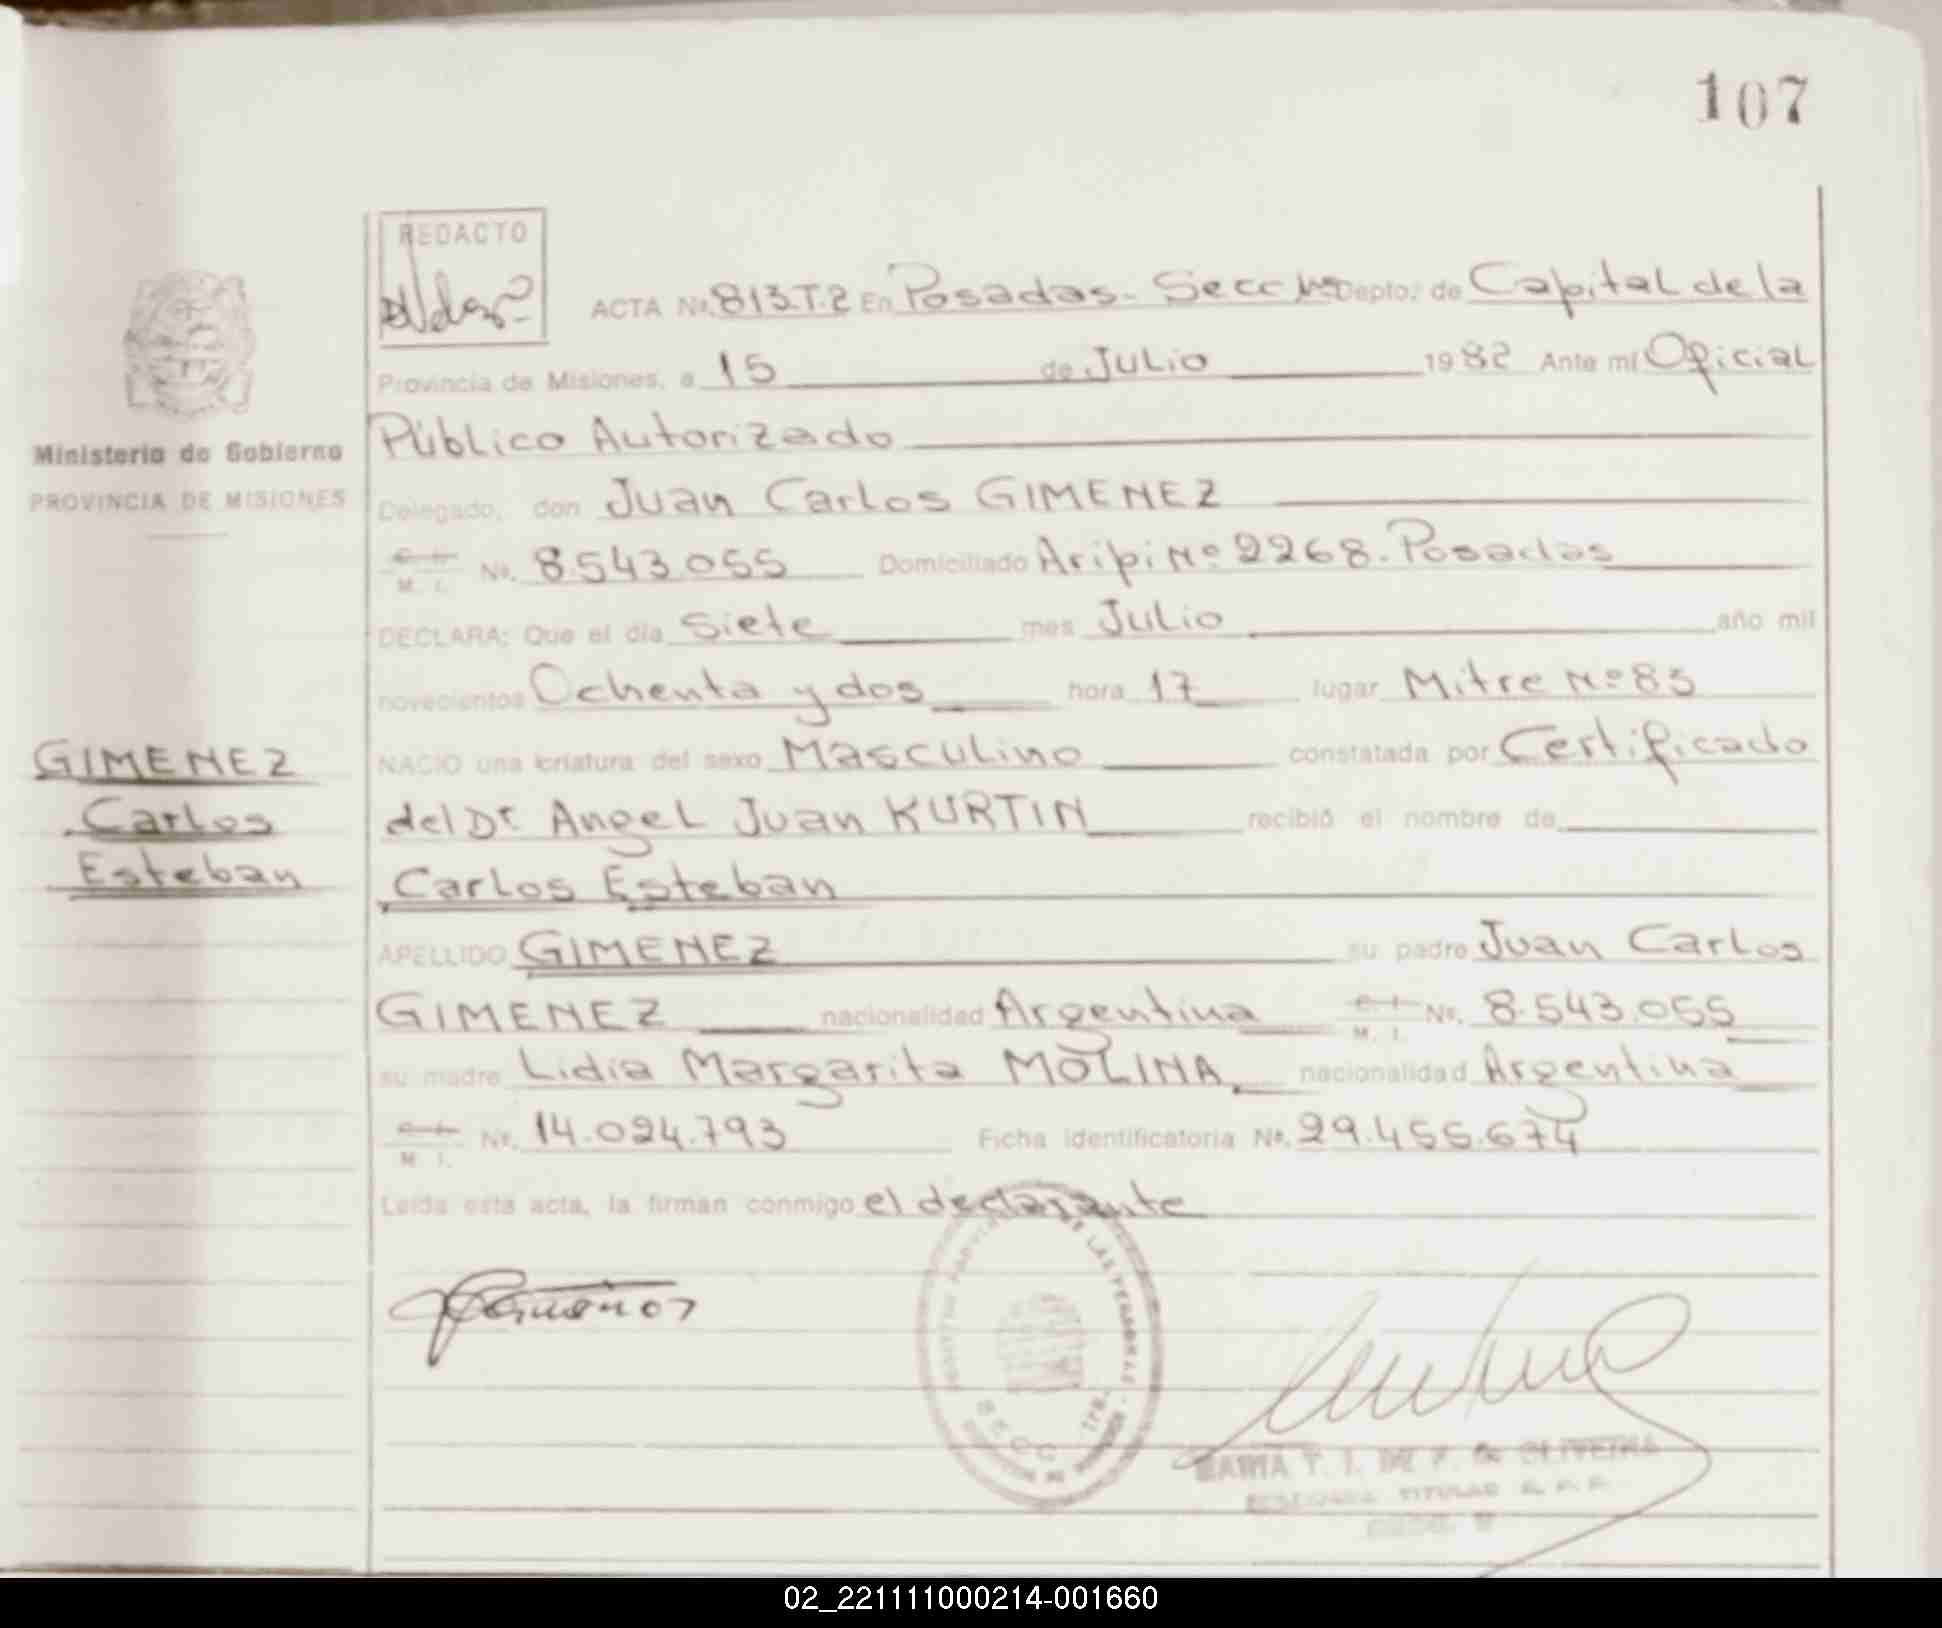 107
REDACTO
ACTA Nº 813.T.2 En Posadas - Secc 1ra Depto. de Capital de la
Provincia de Misiones, a 15 de Julio 1982 Ante mí Oficial
Ministerio de Gobierno
Público Autorizado
PROVINCIA DE MISIONES
Delegado, don Juan Carlos GIMENEZ
C. I.
M. I. Nº. 8.543.055 Domiciliado Aripi Nº 2268. Posadas
DECLARA: Que el día Siete mes Julio año mil
novecientos Ochenta y dos hora 17 lugar Mitre Nº 83
GIMENEZ
Carlos
Esteban
NACIO una criatura del sexo Masculino constatada por Certificado
del Dr Angel Juan KURTIN recibió el nombre de
Carlos Esteban
APELLIDO GIMENEZ su padre Juan Carlos
GIMENEZ nacionalidad Argentina C. I.
M. I. Nº. 8.543.055
su madre Lidia Margarita MOLINA nacionalidad Argentina
C. I.
M. I. Nº. 14.024.793 Ficha identificatoria Nº. 29.455.674
Leída esta acta, la firman conmigo el declarante
DE LAS PERSONAS
SECC. 1ra.
TITULAR
02_221111000214-001660